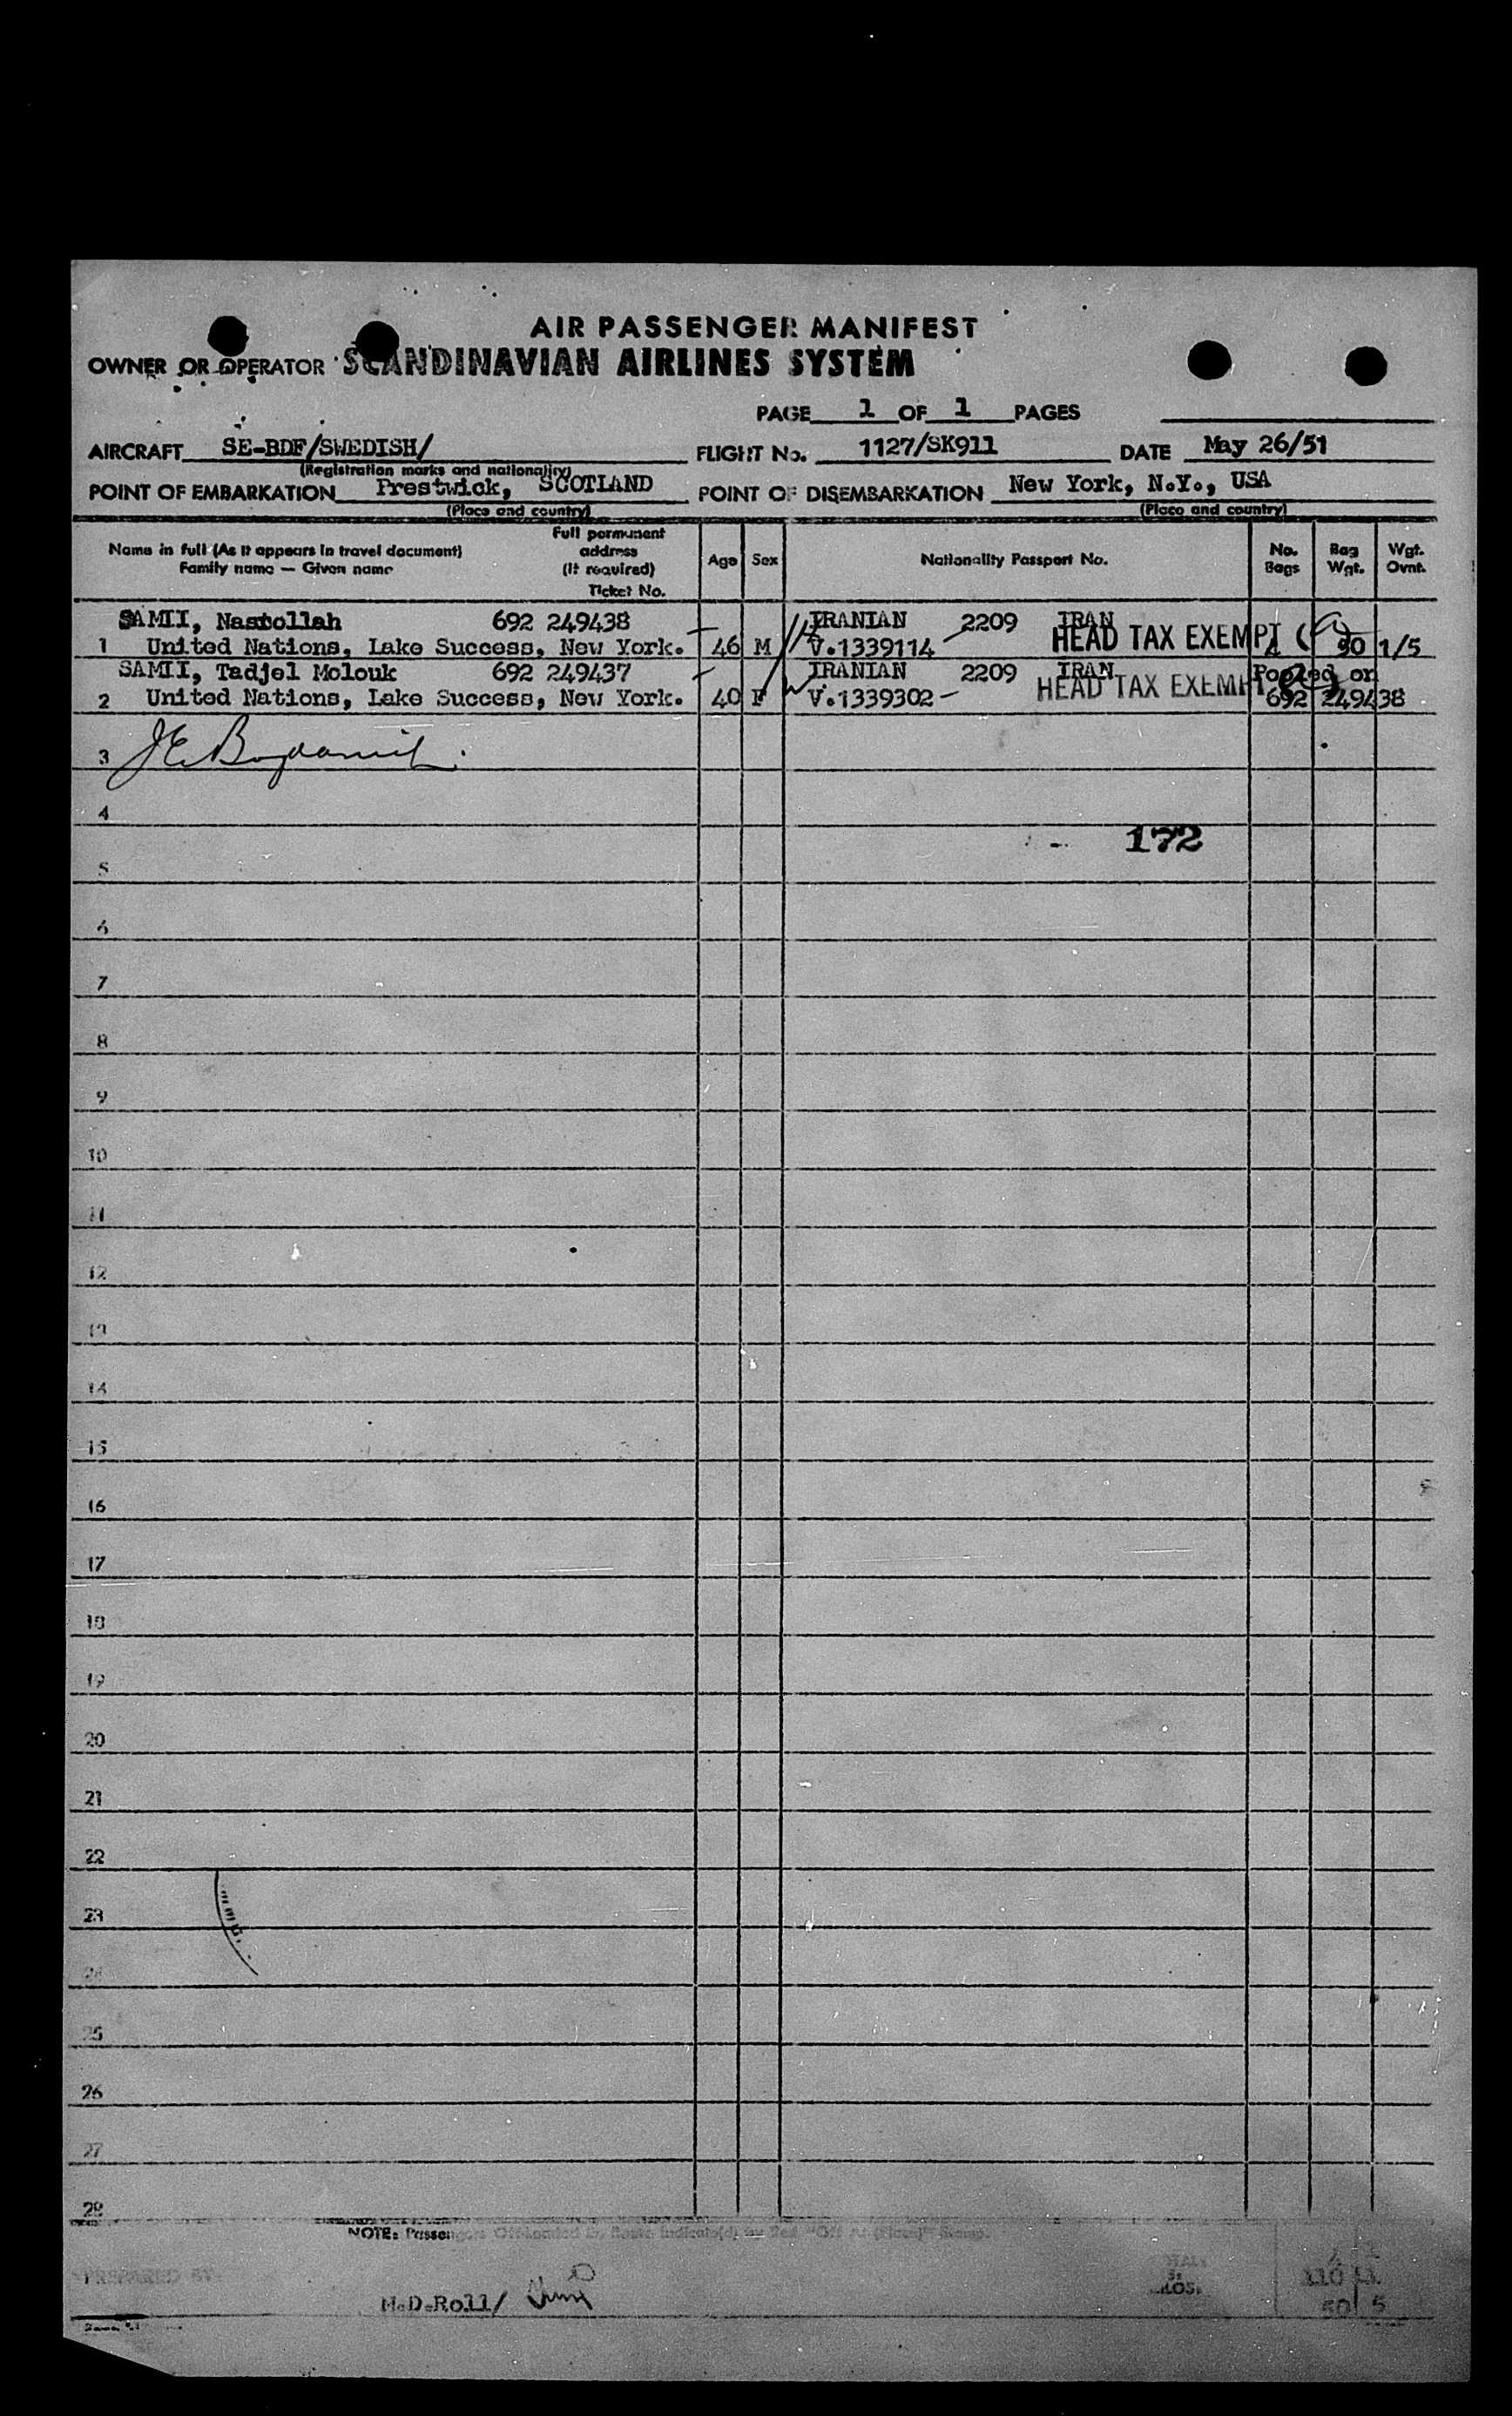 AIR PASSENGER MANIFEST
OWNER OR OPERATOR SCANDINAVIAN AIRLINES SYSTEM
PAGE 1 OF 1 PAGES
AIRCRAFT SE-BDF/SWEDISH/ FLIGHT No. 1127/SK911 DATE May 26/51
(Registration marks and nationality)
POINT OF EMBARKATION Prestwick, SCOTLAND POINT OF DISEMBARKATION New York, N.Y., USA
(Place and country) (Place and country)
Name in full (As it appears in travel document) Family name — Given name Full permanent address (If required) Ticket No. Age Sex Nationality Passport No. No. Bags Bag Wgt. Wgt. Ovnt.
SAMII, Nasrollah 692 249438 IRANIAN 2209 IRAN
1 United Nations, Lake Success, New York. 46 M V.1339114 HEAD TAX EXEMPT 4 50 1/5
SAMII, Tadjel Molouk 692 249437 IRANIAN 2209 IRAN Pooled on
2 United Nations, Lake Success, New York. 40 F V.1339302 HEAD TAX EXEMPT 692 249438
3
4
172
5
6
7
8
9
10
11
12
13
14
15
16
17
18
19
20
21
22
23
24
25
26
27
28
NOTE: Passengers Offloaded En Route Indicate(d) by Red "Off At (Place)" Stamp.
PREPARED BY
M.D.Roll/
110 11
50 5